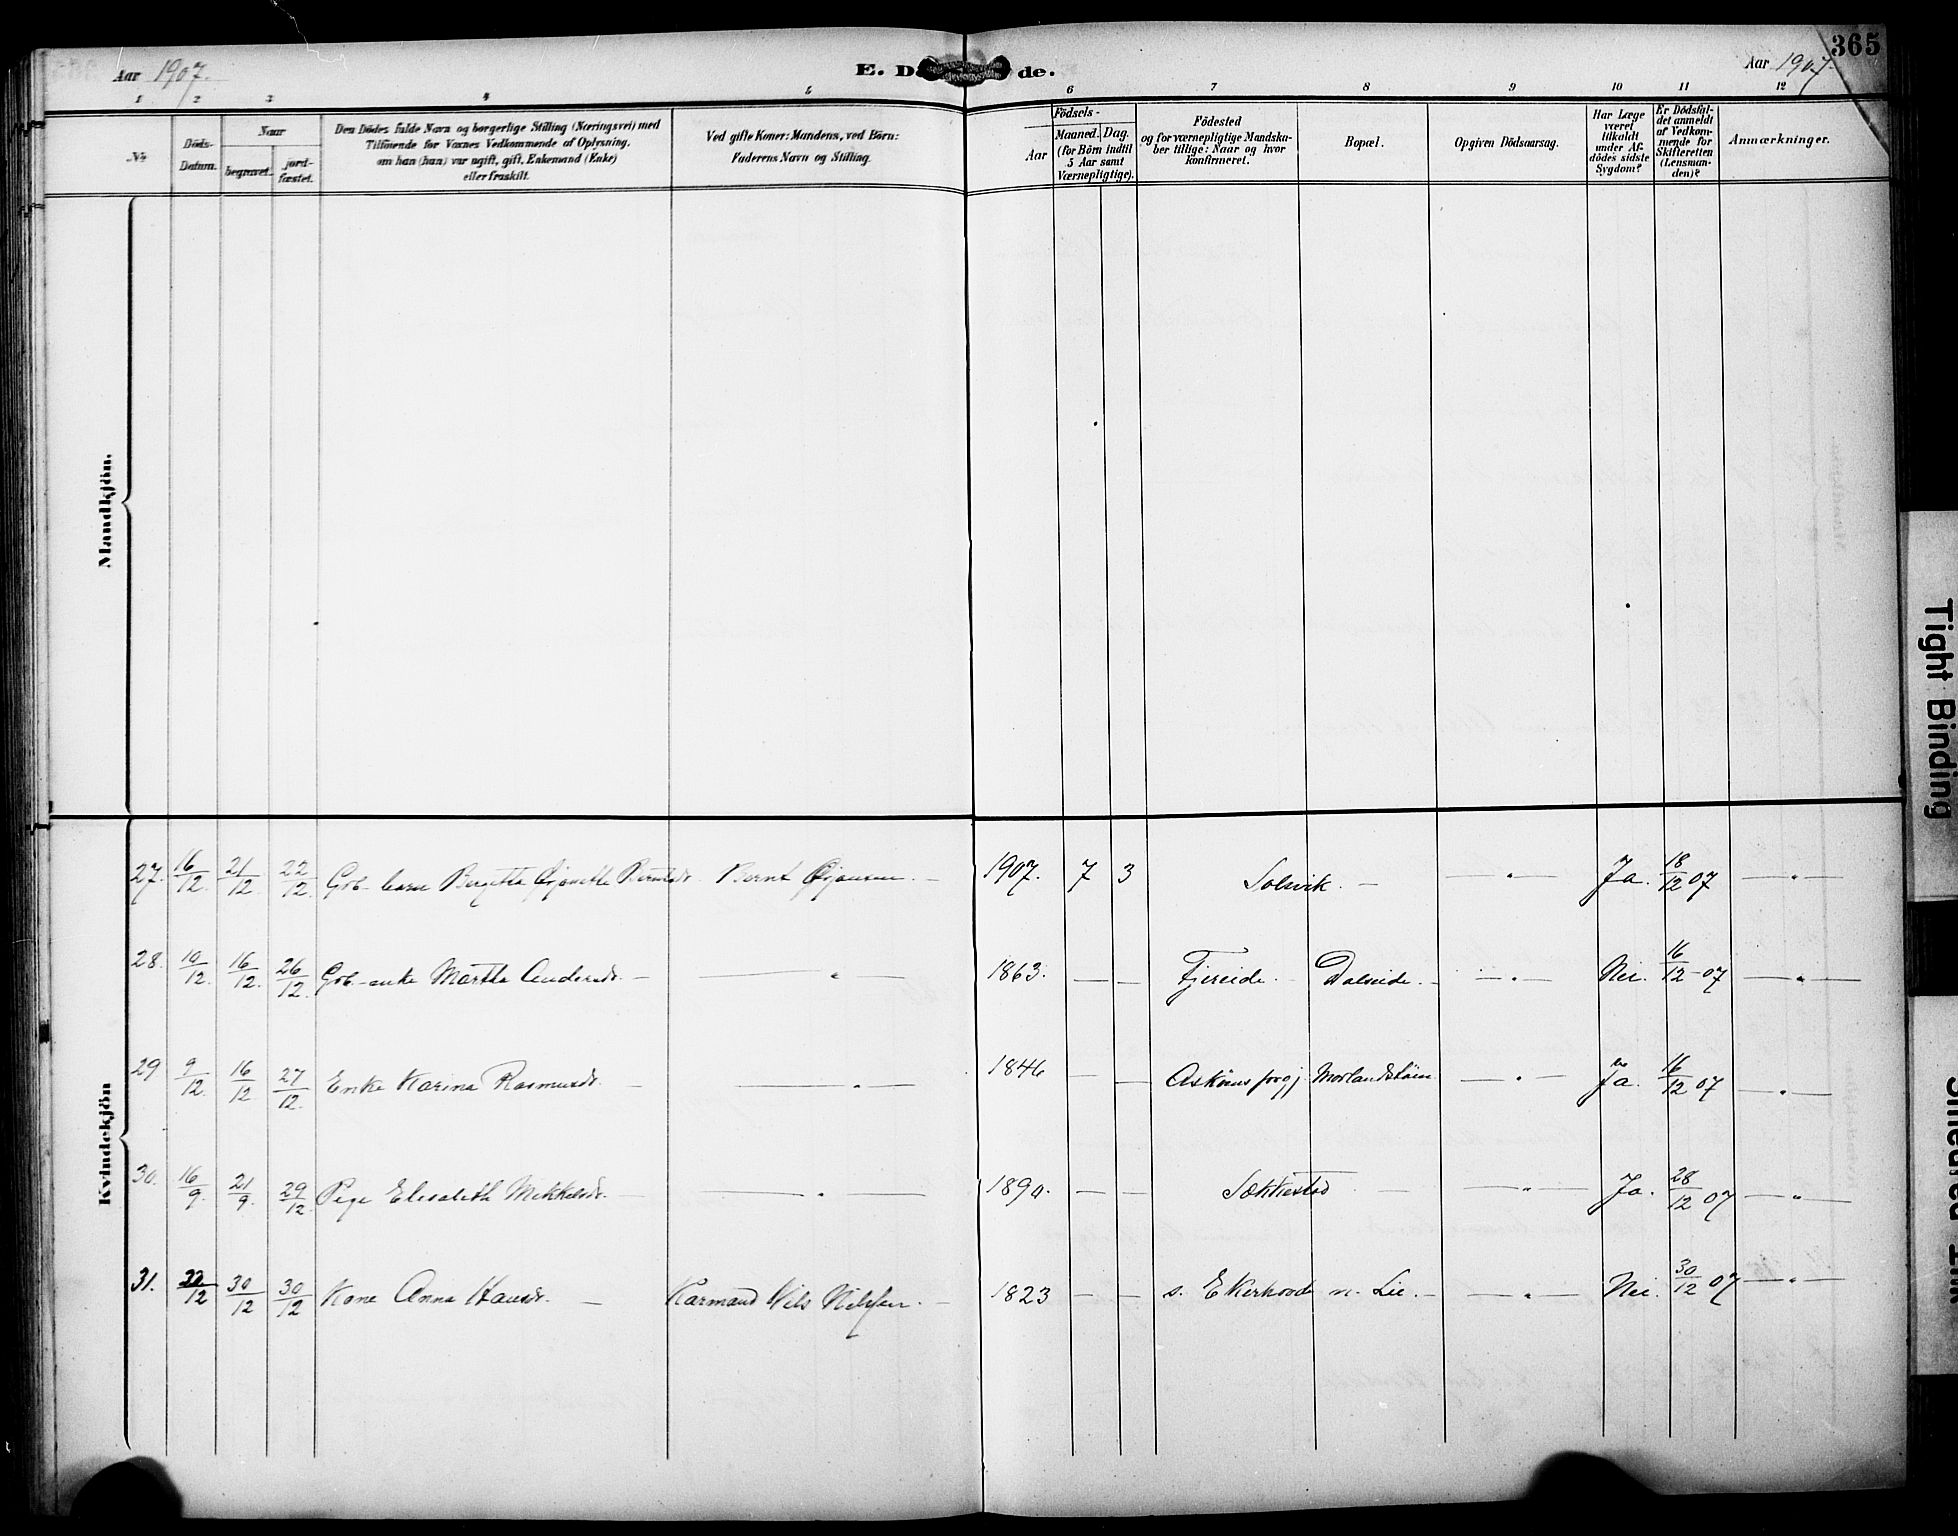 365
Aar 1907.
E. D de.
Aar 1907.
1 2 3 4 5 6 7 8 9 10 11 12
No
Döds-
Datum.
Naar
begravet.
jord-
fæstet.
Den Dödes fulde Navn og borgerlige Stilling (Næringsvei) med
Tilföiende for Voxnes Vedkommende af Oplysning,
om han (hun) var ugift, gift, Enkemand (Enke)
eller fraskilt.
Ved gifte Koner: Mandens, ved Börn:
Faderens Navn og Stilling.
Födsels-
Aar
Maaned. Dag.
(for Börn indtil
5 Aar samt
Værnepligtige).
Födested
og for værnepligtige Mandska-
ber tillige: Naar og hvor
konfirmeret.
Bopæl.
Opgiven Dödsaarsag.
Har Læge
været
tilkaldt
under Af-
dödes sidste
Sygdom?
Er Dödsfal-
det anmeldt
af Vedkom-
mende for
Skifteretten
(Lensman-
den)?
Anmærkninger.
Mandkjön.
Kvindekjön
27. 16/12. 21/12 22/12. Gbr. barn Bergitta Bernt 1907. 7 3 Solsvik. — — " — Ja. 18/12 07 — " —
28. 10/12. 16/12. 26/12. Gbr.-enke Martha Andersdr. — — " — 1863. — — Fjereide. Dalseide. — — " — Nei. 16/12-07 — " —
29 9/12. 16/12 27/12. Enke Karina Rasmusdr. — — " — 1846 — — Askøens prgj. — " — Ja. 16/12 07 — " —
30. 16/9. 21/9. 29/12. Pige Elisabeth Mikkelsdr. — — " — 1890. — — Sækkestad — — " — Ja. 28/12 07 — " —
31. 22/12 30/12 30/12 Kone Anna Hansdr. — Kaarmand Nils Nilssen. — 1823 — — s. Ekerhovde n. Lie. — — " — Nei. 30/12 07 — " —
Tight Binding